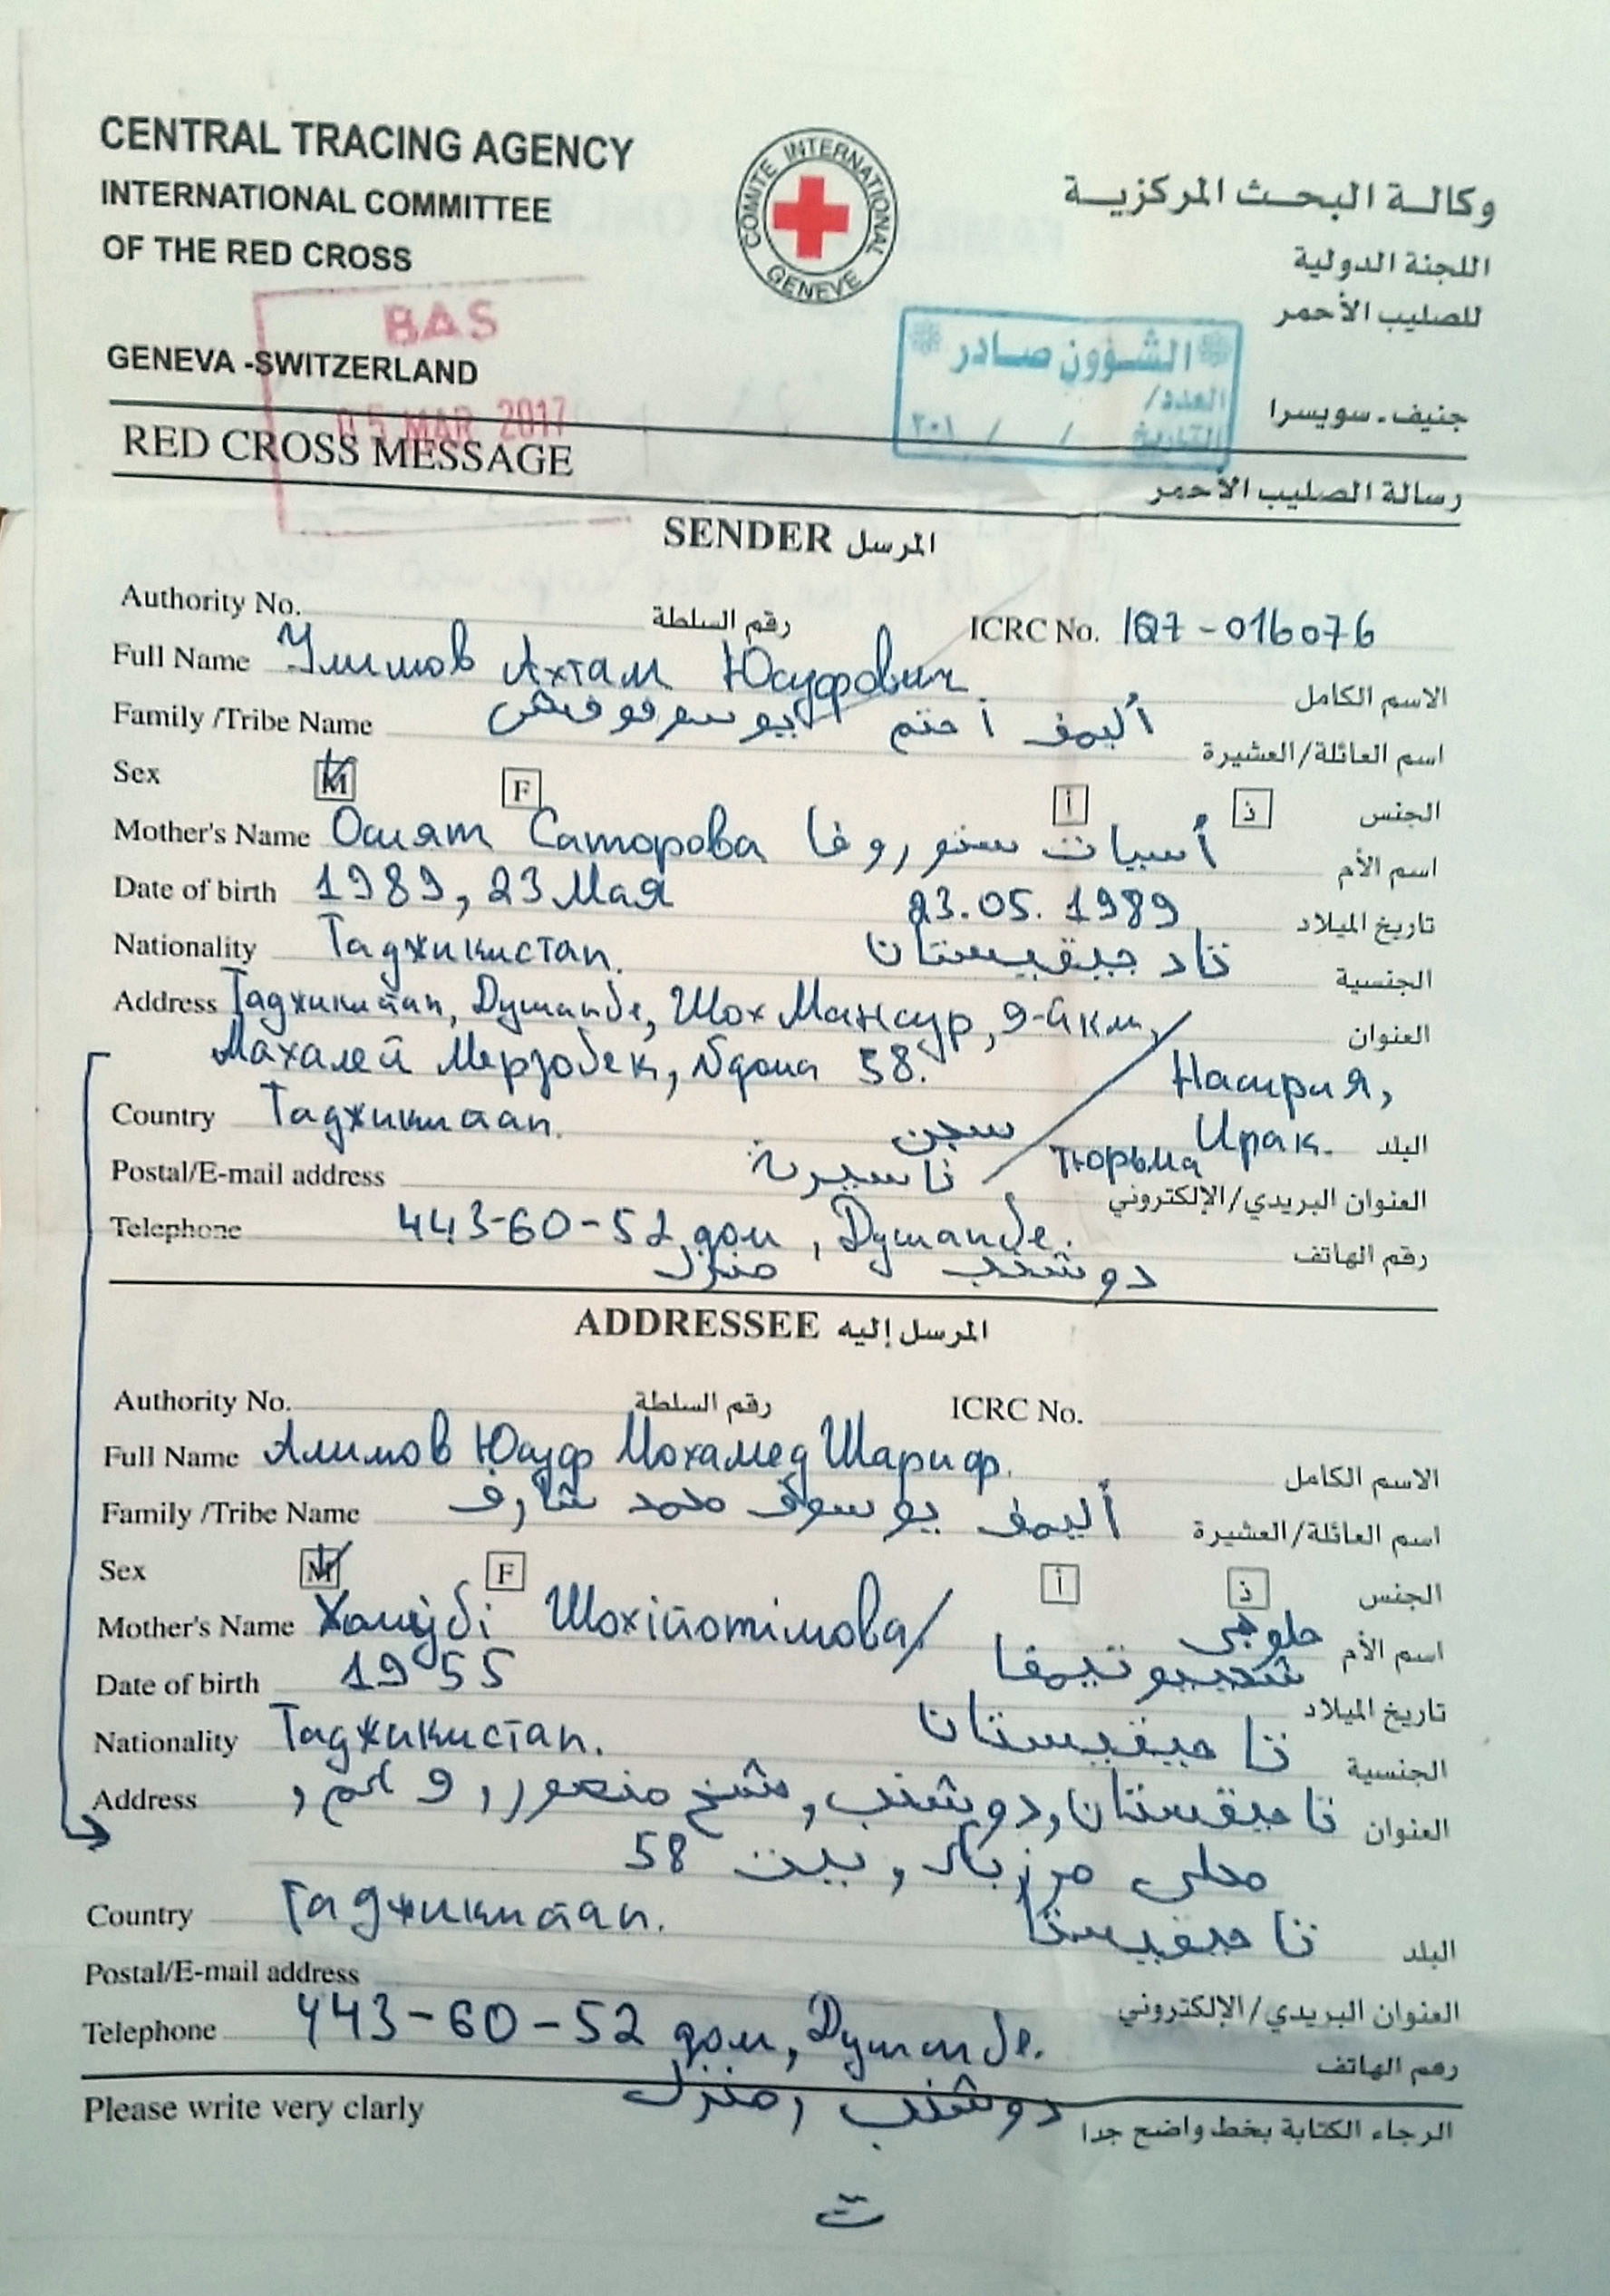 CENTRAL TRACING AGENCY
INTERNATIONAL COMMITTEE
OF THE RED CROSS
GENEVA -SWITZERLAND
COMITE INTERNATIONAL GENEVE
وكالة البحث المركزية
اللجنة الدولية
للصليب الأحمر
جنيف - سويسرا
BAS
05 MAR 2017
الشؤون صادر
العدد/
التاريخ / / ٢٠١
RED CROSS MESSAGE
رسالة الصليب الأحمر
SENDER المرسل
Authority No. رقم السلطة ICRC No. IQ7-016076
Full Name Улимов Ахтам Юсуфович الاسم الكامل
Family /Tribe Name أليمف أحتم اسم العائلة/العشيرة
Sex M F أ ذ الجنس
Mother's Name Осият Саторова أسيات ستوروفا اسم الأم
Date of birth 1989, 23 Мая 23.05.1989 تاريخ الميلاد
Nationality Таджикистан. تاد جيقيستان الجنسية
Address Таджикистан, Душанбе, Шох Мансур, 9-й км, العنوان
Махалей Мерзобек, 58. Насирия,
Country Таджикистан. سجن Тюрьма Ирак. البلد
Postal/E-mail address ناسيرية العنوان البريدي/الإلكتروني
Telephone 443-60-52 дом, Душанбе. رقم الهاتف
دوشنب منزل
ADDRESSEE المرسل إليه
Authority No. رقم السلطة ICRC No.
Full Name Алимов Юсуф Мохамед Шариф. الاسم الكامل
Family /Tribe Name أليمف يوسوف محمد شارف اسم العائلة/العشيرة
Sex M F أ ذ الجنس
Mother's Name اسم الأم
Date of birth 1955 تاريخ الميلاد
Nationality Таджикистан. تاجيقيستان الجنسية
Address تاجيقستان, دوشنب, شخ منصور, 9 كم, العنوان
محلى مرزبك, بيت 58
Country Таджикистан. تاجيقيستا البلد
Postal/E-mail address العنوان البريدي/الإلكتروني
Telephone 443-60-52 дом, Душанбе. رقم الهاتف
دوشنب, منزل
Please write very clarly الرجاء الكتابة بخط واضح جدا
ت